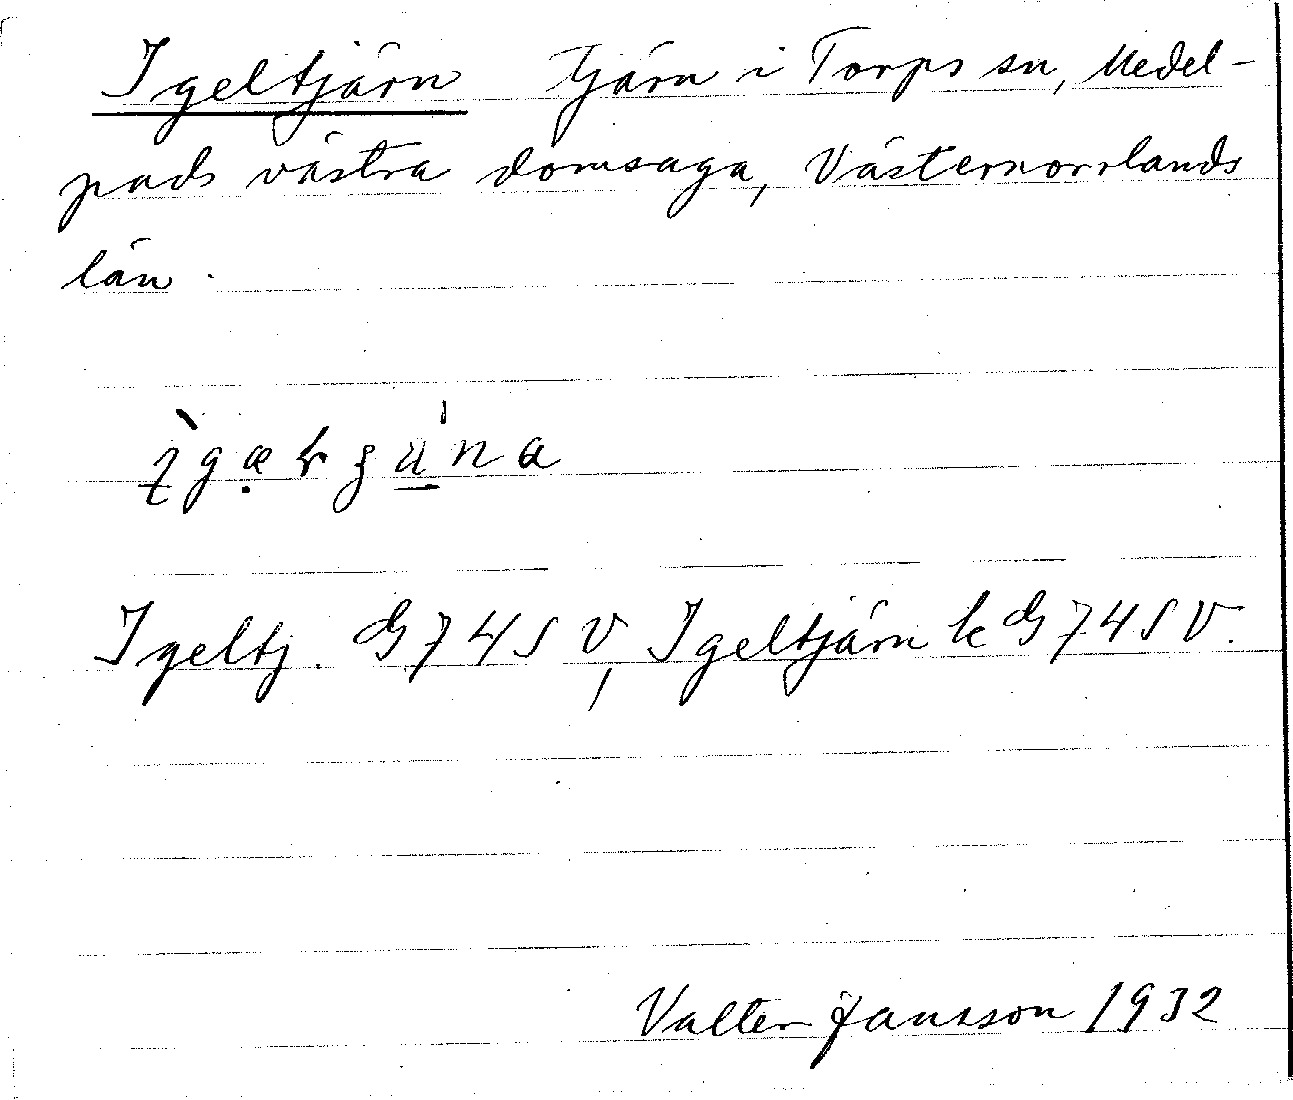 Igeltjärn Tjärn i Torps sn, Medel-
pads västra domsaga, Västernorrlands
län.
Igeltj. G 74 S V, Igeltjärn k G 74 S V.
Valter Jansson 1932